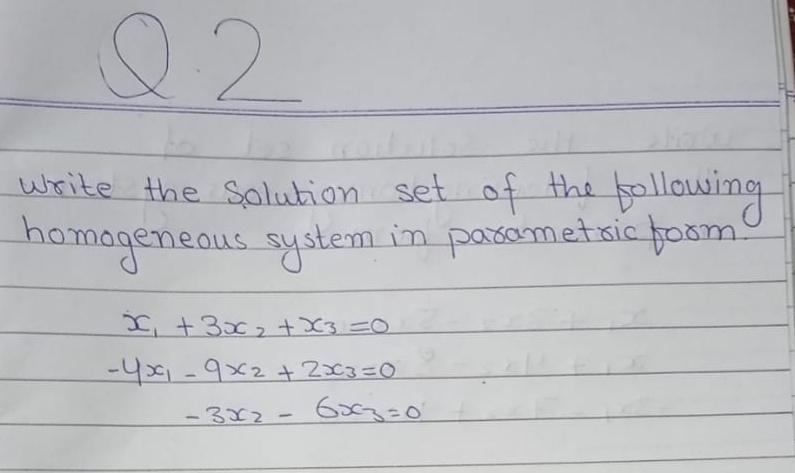 Q.2
Write the Solution set of the following
homogeneous system in parametric form.
x₁ + 3x₂ + x₃ = 0
-4x₁ - 9x₂ + 2x₃ = 0
- 3x₂ - 6x₃ = 0